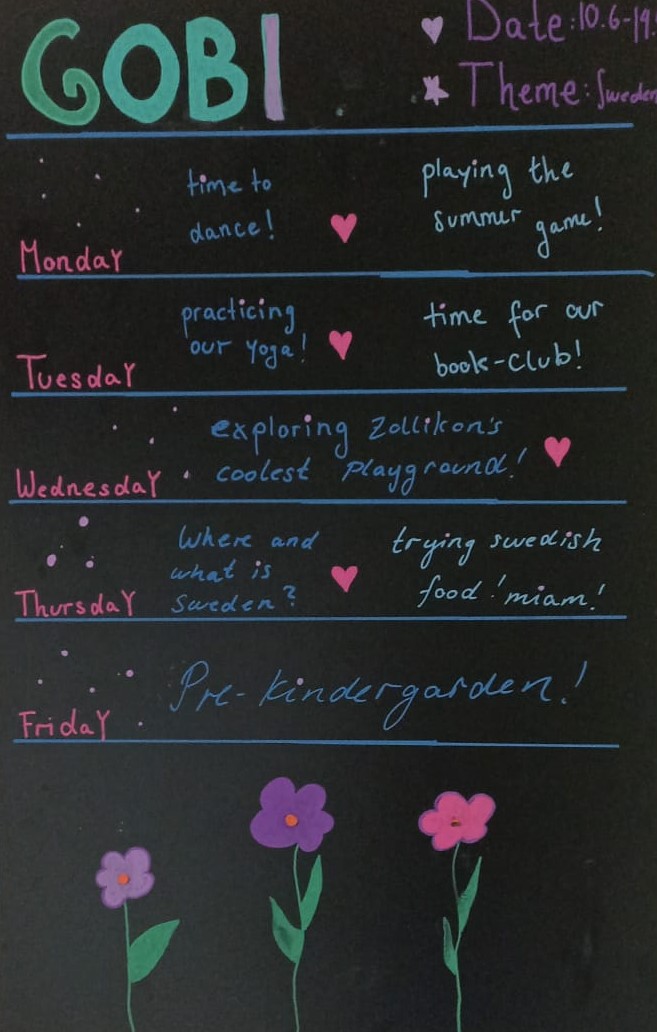 GOBI
Date: 10.6-19.
Theme: Sweden
Monday
time to
dance!
playing the
summer game!
Tuesday
practicing
our yoga!
time for our
book-club!
Wednesday
exploring Zollikon's
coolest playground!
Thursday
Where and
what is
Sweden?
trying swedish
food! miam!
Friday
Pre-kindergarden!